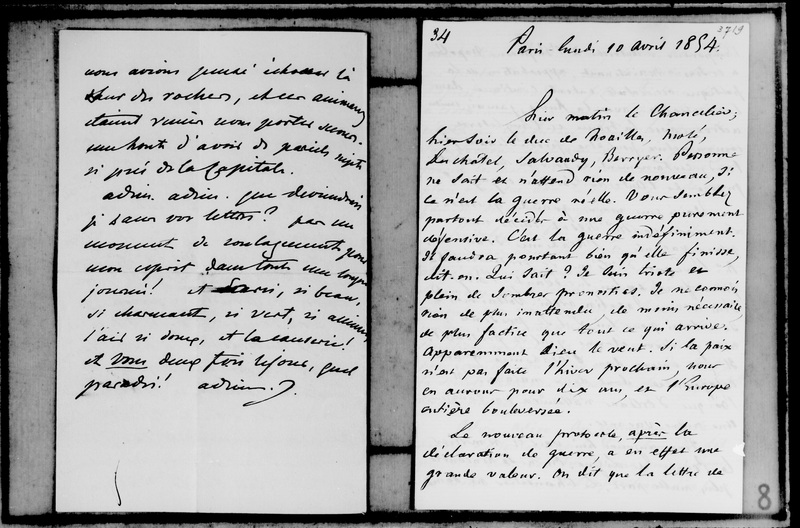 nous avions pensé échouer là
sur des rochers, et ces animaux
étaient venus nous porter secours.
une honte d'avoir de pareils sujets
si près de la Capitale.
adieu. adieu. que deviendrais
je sans vos lettres? pas un
moment de soulagement pour
mon esprit dans toute une longue
journée! et Paris, si beau,
si charmant, si vert, si animé,
l'air si doux, et la causerie!
et vous deux fois le jour, quel
paradis! adieu.
34
3719
Paris lundi 10 avril 1854.
Hier matin le Chancelier;
hier soir le duc de Noailles, Molé,
Duchâtel, Salvandy, Berryer. Personne
ne sait et n'attend rien de nouveau, si
ce n'est la guerre réelle. Vous semblez
partout décidés à une guerre purement
défensive. C'est la guerre indéfiniment.
Il faudra pourtant bien qu'elle finisse,
dit-on. Qui sait? Je suis triste et
plein de sombres pronostics. Je ne connois
rien de plus inattendu, de moins nécessaire,
de plus factice que tout ce qui arrive.
Apparemment Dieu le veut. Si la paix
n'est pas faite l'hiver prochain, nous
en aurons pour dix ans, et l'Europe
entière bouleversée.
Le nouveau protocole, après la
déclaration de guerre, a en effet une
grande valeur. On dit que la lettre de
8